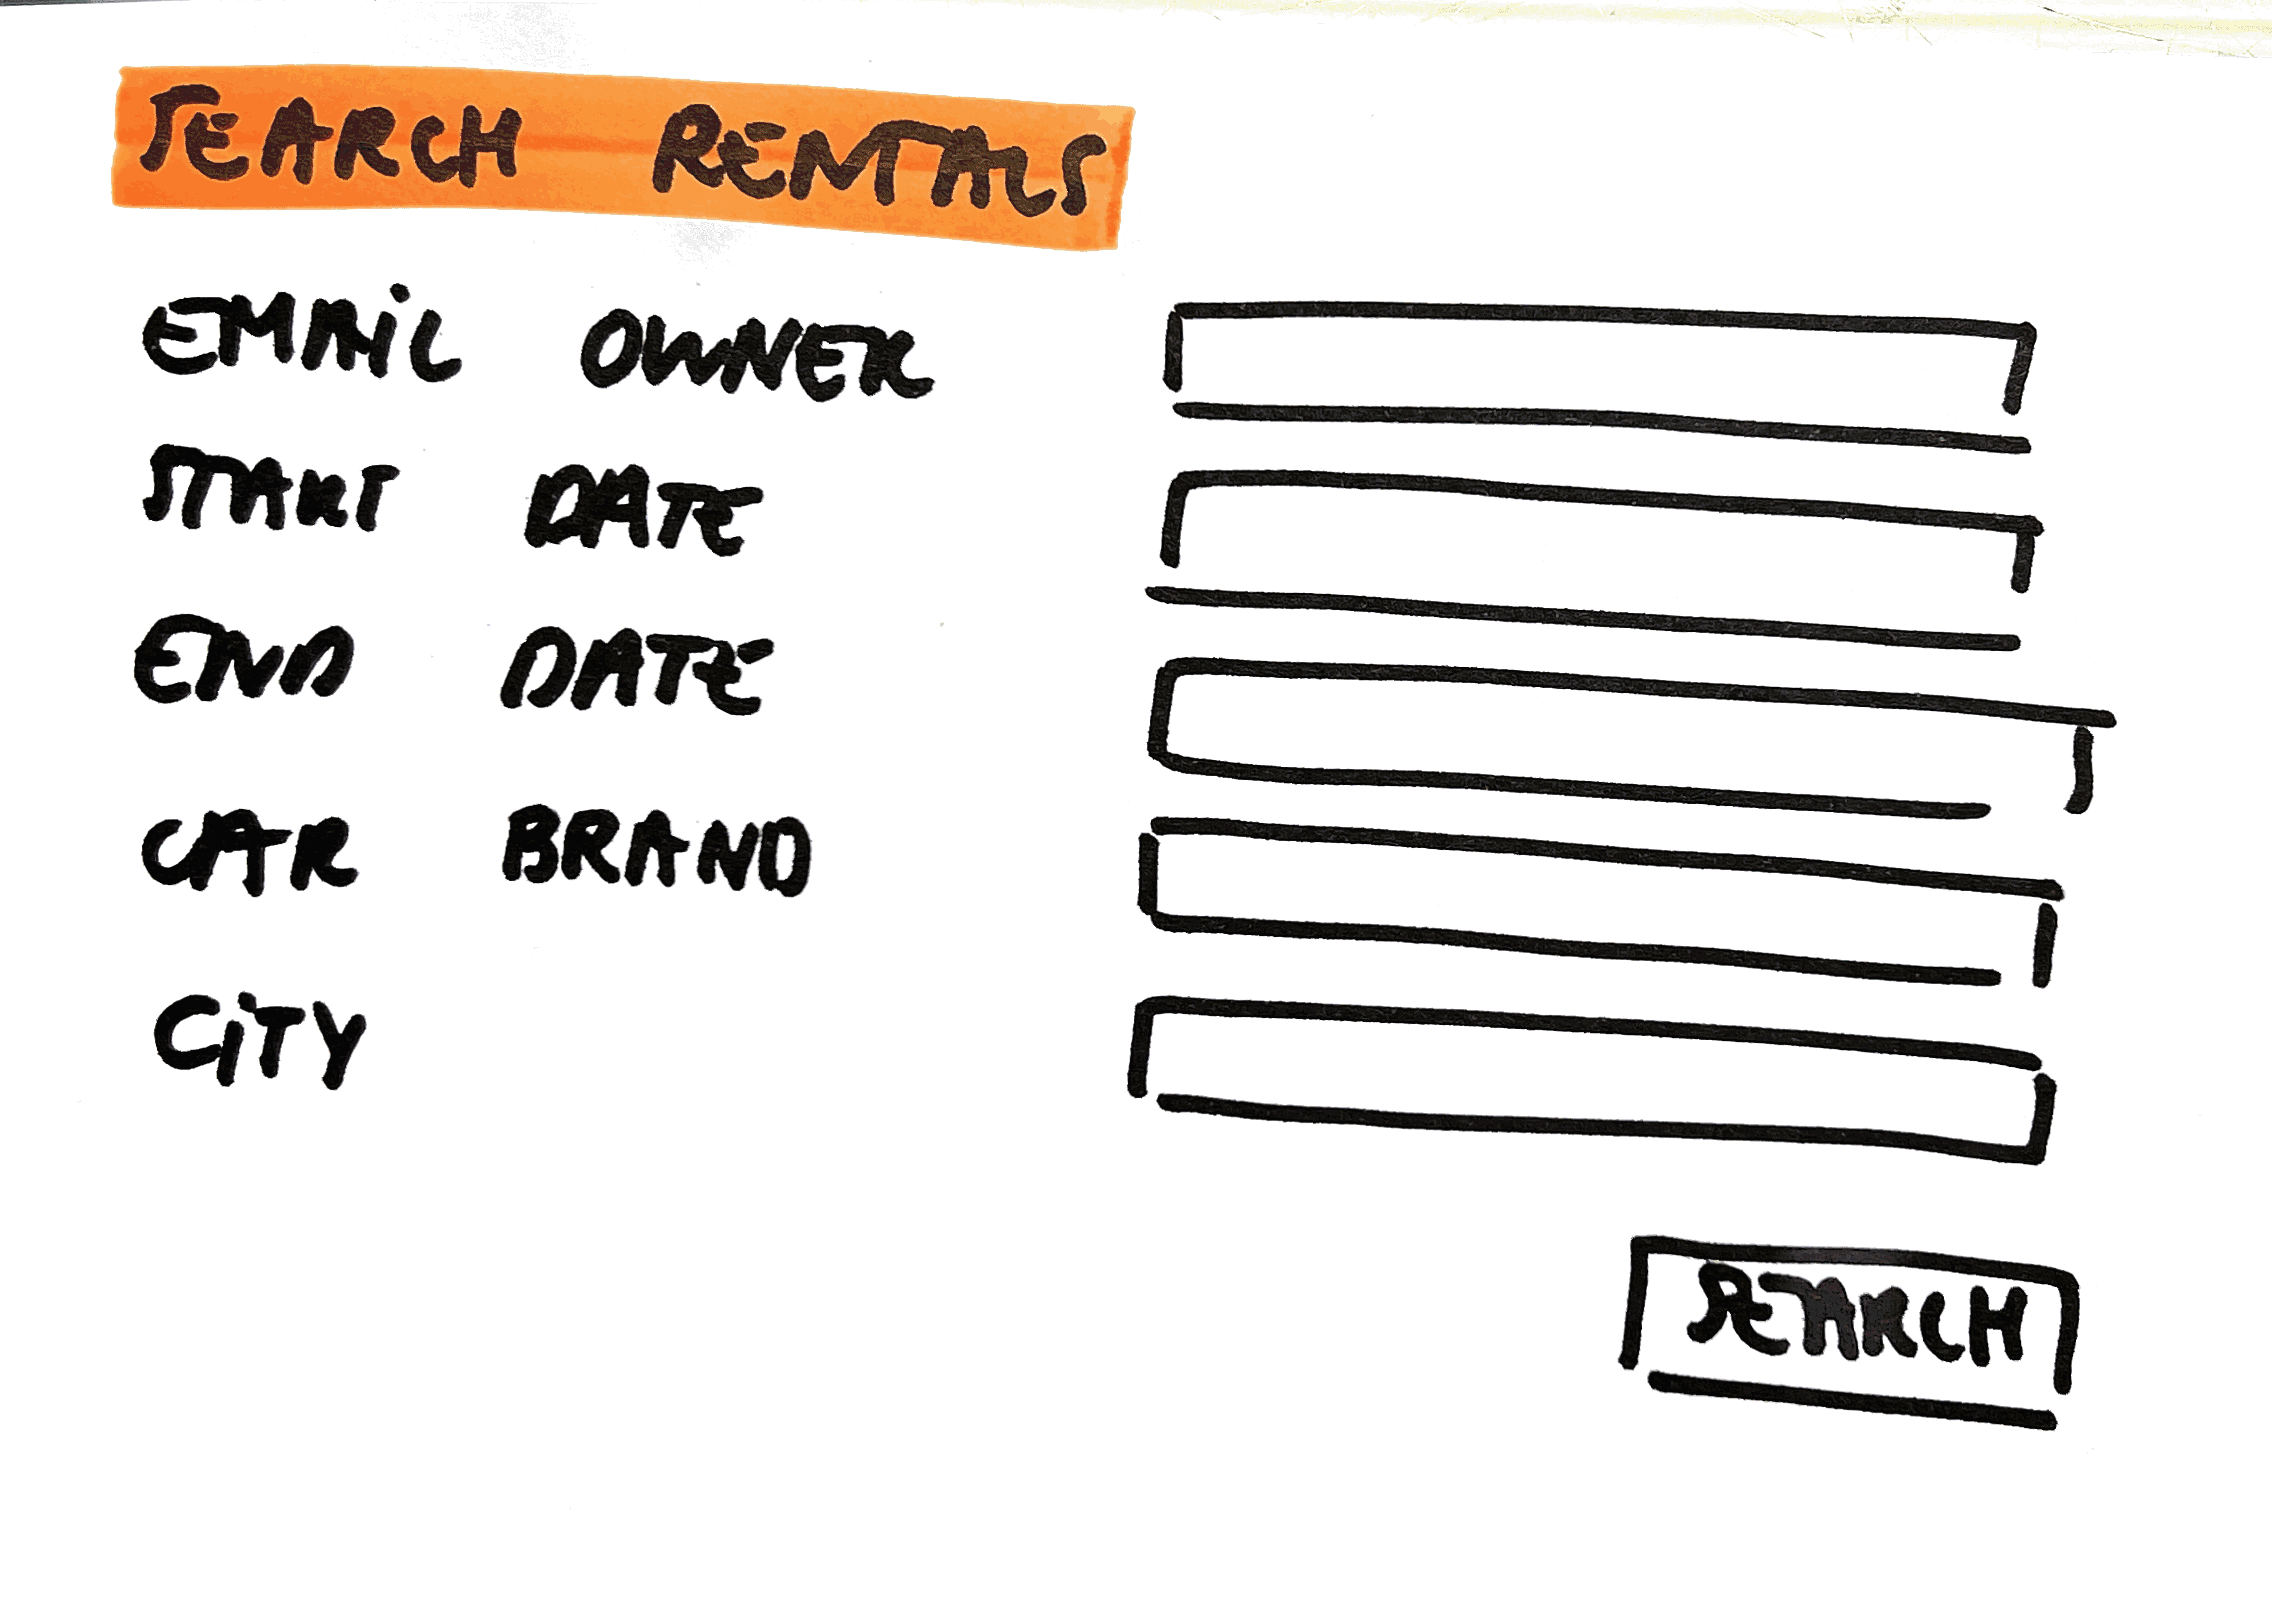 SEARCH RENTALS
EMAiL OWNER
START DATE
END DATE
CAR BRAND
CiTY
SEARCH